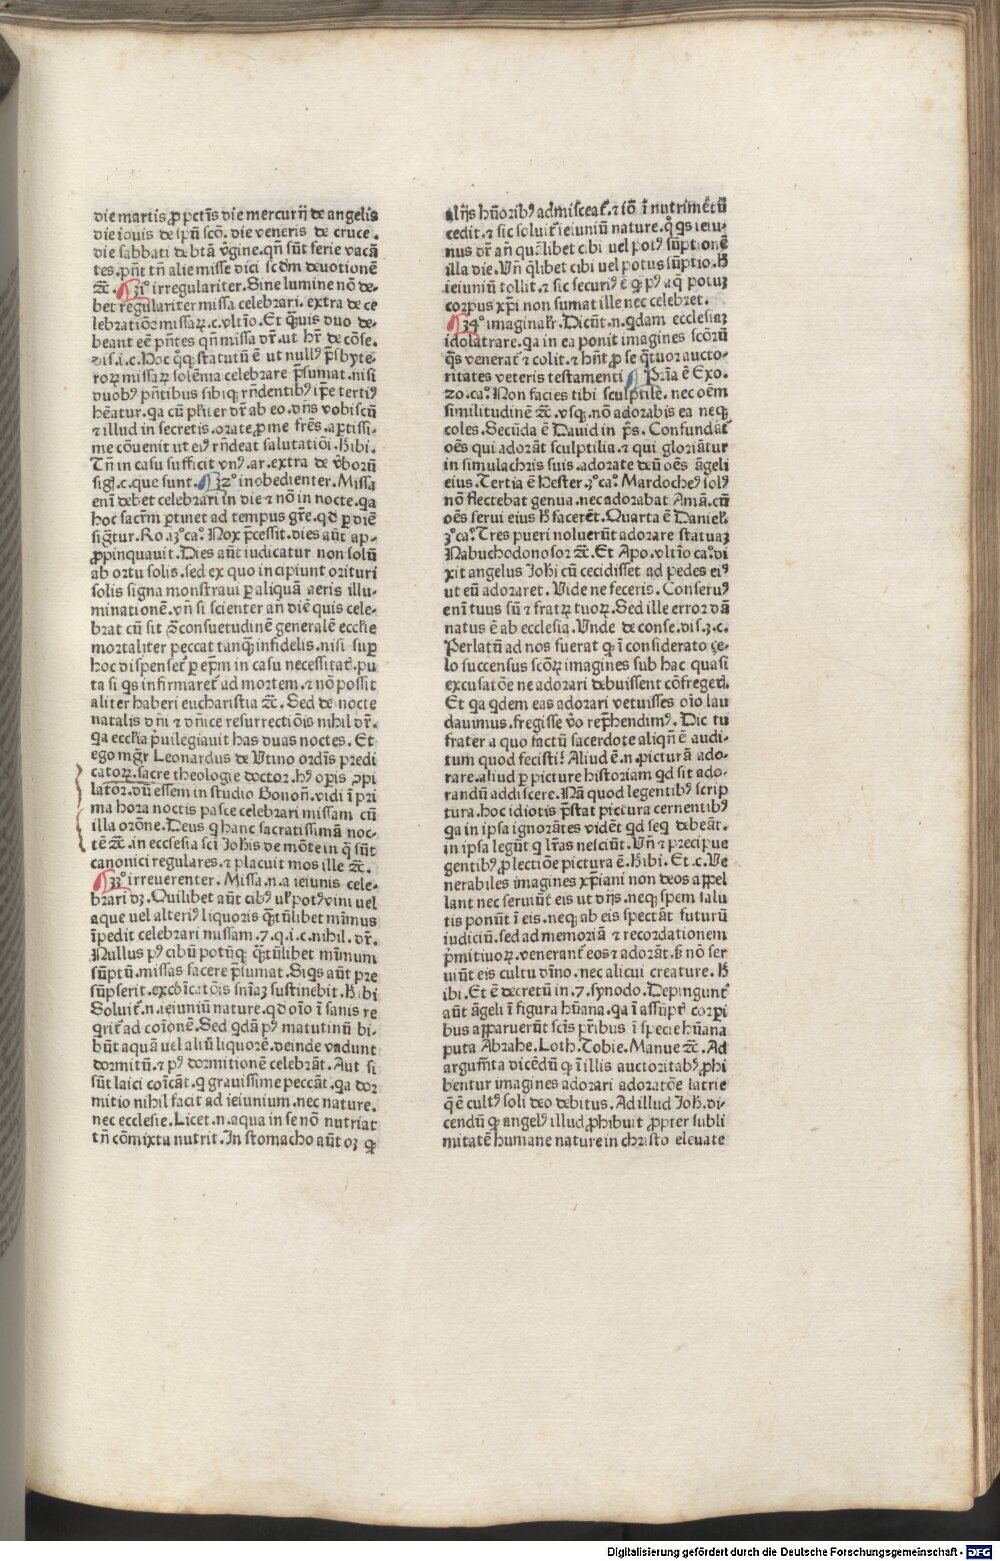 die martis ꝓ pctīs die mercurij de angelis
die iouis de ſpū ſcō. die veneris de cruce.
die ſabbati de btā v̄gine. qn̄ ſūt ferie vacā
tes. pn̄t tn̄ alie miſſe dici ſcdm deuotionē
⁊c̄. ¶ 31° irregulariter. Sine lumine nō de-
bet regulariter miſſa celebrari. extra de ce
lebratiōꝫ miſſaꝝ. c. vltīo. Et q̄uis duo de-
beant eē pn̄tes qn̄ miſſa dr̄. ut hr̄ de cōſe.
dis. i. c. Hoc qͦꝗ ſtatutū ē ut nullꝰ p̄ſbyte-
roꝝ miſſaꝝ ſolēnia celebrare p̄ſumat. niſi
duobꝰ pn̄tibus ſibiqꝫ rn̄dentibꝰ ip̄e tertiꝰ
hēatur. qa cū pl̄r̄iter dr̄ ab eo. dn̄s vobiſcū
⁊ illud in ſecretis. orate ꝓ me fr̄es. aꝑtiſſi-
me cōuenit ut eiꝰ rn̄deat ſalutatiōi. Hibi.
Tn̄ in caſu ſufficit vnꝰ. ar. extra de v̄borū
ſigͥ. c. que ſunt. ¶ 32° inobedienter. Miſſa
eni debet celebrari in die ⁊ nō in nocte. qa
hoc ſacrm̄ ꝑtinet ad tempus gr̄e. qd ꝑ diē
ſigͣtur. Ro. a 3° caͦ. Nox p̄ceſſit. dies aūt ap-
ꝓpinquauit. Dies aūt iudicatur non ſolū
ab ortu ſolis. ſed ex quo incipiunt orituri
ſolis ſigna monſtraui ꝑ aliquā aeris illu-
minationē. vn̄ ſi ſcienter an̄ diē quis cele-
brat cū ſit ꝯ̄ conſuetudinē generalē eccl̄ie
mortaliter peccat tanqͣꝫ infidelis. niſi ſuꝑ
hoc diſpenſet̄ ꝑ ep̄m in caſu neceſſitat̄. pu
ta ſi qs infirmaret̄ ad mortem. ⁊ nō poſſit
aliter haberi euchariſtia ⁊c̄. Sed de nocte
natalis dn̄i ⁊ dn̄ice reſurrectiōis nihil dr̄.
qa eccl̄ia pͥuilegiauit has duas noctes. Et
ego mgr̄ Leonardus de Vtino ordīs predi
catoꝝ. ſacre theologie doctor. hꝰ oꝑis ꝯpi
lator. dū eſſem in ſtudio Bonoń. vidi ī pri
ma hora noctis paſce celebrari miſſam cū
illa orōne. Deus q hanc ſacratiſſimā noc-
tē ⁊c̄. in eccſeſia ſcī Joh̄is de mōte in q̄ ſūt
canonici regulares. ⁊ placuit mos ille ⁊c̄.
¶ 33° irreuerenter. Miſſa. n. a ieiunis cele-
brari dꝫ. Quilibet aūt cibꝰ uł potꝰ vini uel
aque uel alteriꝰ liquoris qͣt̄ūlibet minimus
īpedit celebrari miſſam. 7. q. i. c. nihil. dr̄.
Nullus pꝰ cibū potūqꝫ qͣt̄ūlibet minimum
ſūptū. miſſas facere p̄ſumat. Siqs aūt pre
ſūpſerit. excōicatōis ſn̄iaꝫ ſuſtinebit. Hibi
Soluit̄. n. ieiuniū nature. qd oīo ī ſanis re
qrit̄ ad coīonē. Sed qdā pꝰ matutinū bi-
būt aquā uel aliū liquorē. deinde vadunt
dormitū. ⁊ pꝰ dormitionē celebrāt. Aut ſi
ſūt laici coīcāt. q grauiſſime peccāt. qa dor
mitio nihil facit ad ieiunium. nec nature.
nec eccleſie. Licet. n. aqua in ſe nō nutriat
tn̄ cōmixta nutrit. In ſtomacho aūt oꝫ ꝙ
alijs hūoribꝰ admiſceat̄. ⁊ iō ī nutrimētū
cedit. ⁊ ſic ſoluit̄ ieiuniū nature. qͦ qs ieiu-
nus dr̄ an̄ quālibet cibi uel potꝰ ſūptionē
illa die. Vn̄ q̄libet cibi uel potus ſūptio. H
ieiuniū tollit. ⁊ ſic ſecuriꝰ ē ꝙ pꝰ aq̄ potuꝫ
corpus xp̄i non ſumat ille nec celebret.
¶ 34° imaginal̄r. Dicūt. n. qdam eccleſiaꝫ
idolatrare. qa in ea ponit imagines ſcōrū
q̄s venerat̄ ⁊ colit. ⁊ hn̄t ꝓ ſe q̄tuor aucto-
ritates veteris teſtamenti ¶ Pr̄ia ē Exo.
20. caͦ. Non facies tibi ſculptile. nec oēm
ſimilitudinē ⁊c̄. vſqꝫ. nō adorabis ea neqꝫ
coles. Secūda ē Dauid in pͣs. Confundāt̄
oēs qui adorāt ſculptilia. ⁊ qui gloriātur
in ſimulachris ſuis. adorate deū oēs āgeli
eius. Tertia ē Heſter. 3° caͦ. Mardocheꝰ ſolꝰ
nō flectebat genua. nec adorabat Amā. cū
oēs ſerui eius H facerēt. Quarta ē Danieł.
3° caͦ. Tres pueri noluerūt adorare ſtatuaꝫ
Nabuchodonoſor ⁊c̄. Et Apo. vltīo caͦ. di
xit angelus Joh̄i cū cecidiſſet ad pedes eiꝰ
ut eū adoraret. Vide ne feceris. Conſeruꝰ
enī tuus ſū ⁊ fratꝝ tuoꝝ. Sed ille error dā
natus ē ab eccleſia. Vnde de conſe. diſ. 3. c.
Perlatū ad nos fuerat ꝙ ī conſiderato ze-
lo ſuccenſus ſcōꝝ imagines ſub hac quaſi
excuſatōe ne adorari debuiſſent cōfreger̄.
Et qa qdem eas adorari vetuiſſes oīo lau
dauimus. fregiſſe v̄o rep̄hendimꝰ. Dic tu
frater a quo factū ſacerdote aliqn̄ ē audi-
tum quod feciſti? Aliud ē. n. picturā ado-
rare. aliud ꝑ picture hiſtoriam qd ſit ado-
randū addiſcere. Nā quod legentibꝰ ſcrip
tura. hoc idiotis p̄ſtat pictura cernentibꝰ
qa in ipſa ignorātes vidēt qd ſeq̄ debeāt.
in ipſa legūt q lr̄as neſciūt. Vn̄ ⁊ precipue
gentibꝰ ꝓ lectiōe pictura ē. Hibi. Et. c. Ve
nerabiles imagines xp̄iani non deos appel
lant nec ſeruiūt eis ut dijs. neqꝫ ſpem ſalu
tis ponūt ī eis. neqꝫ ab eis ſpectāt futurū
iudiciū. ſed ad memoriā ⁊ recordationem
pͥmitiuoꝝ. venerant̄ eos ⁊ adorāt. ſꝫ nō ſer
uiūt eis cultu dīno. nec alicui creature. H
ibi. Et ē decretū in. 7. ſynodo. Depingunt̄
aūt āgeli ī figura hūana. qa ī aſſūpt̄ corpi
bus apparuerūt ſcīs pr̄ibus ī ſpecie hūana
puta Abrahe. Loth. Tobie. Manue ⁊c̄. Ad
argum̄ta dicēdū ꝙ ī illis auctoritabꝰ ꝓhi
bentur imagines adorari adoratōe latrie
q̄ ē cultꝰ ſoli deo debitus. Ad illud Joh̄. di-
cendū ꝙ angelꝰ illud ꝓhibuit ꝓpter ſubli
mitatē humane nature in chriſto eleuate
Digitalisierung gefördert durch die Deutsche Forschungsgemeinschaft - DFG